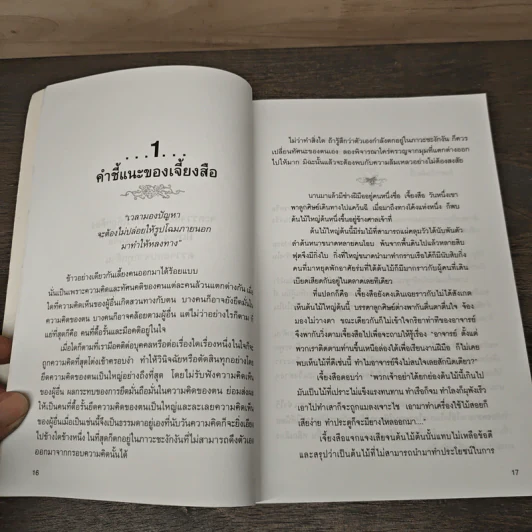 ...1...
คำชี้แนะของเจี้ยงสือ
"เวลามองปัญหา
จะต้องไม่ปล่อยให้รูปโฉมภายนอก
มาทำให้หลงทาง"
ข้าวอย่างเดียวกันเลี้ยงคนออกมาได้ร้อยแบบ
นั่นเป็นเพราะความคิดและทัศนคติของคนแต่ละคนล้วนแตกต่างกัน เมื่อ
ใดที่ความคิดเห็นของผู้อื่นเกิดสวนทางกับตน บางคนก็อาจยังยึดมั่นใน
ความคิดของตน บางคนก็อาจคล้อยตามผู้อื่น แต่ไม่ว่าอย่างไรก็ตาม ผู้
แย่ที่สุดก็คือ คนที่ดื้อรั้นและมีอคติอยู่ในใจ
เมื่อใดก็ตามที่เรามีอคติต่อบุคคลหรือต่อเรื่องใดเรื่องหนึ่งในใจก็จะ
ถูกความคิดที่สุดโต่งเข้าครอบงำ ทำให้วินิจฉัยหรือตัดสินทุกอย่างโดย
ยึดความคิดของตนเป็นใหญ่อย่างถึงที่สุด โดยไม่รับฟังความคิดเห็น
ของผู้อื่น ผลกระทบของการยึดมั่นถือมั่นในความคิดของตน ย่อมส่งผล
ให้เป็นคนที่ดื้อรั้นยึดความคิดของตนเป็นใหญ่และละเลยความคิดเห็น
ของผู้อื่นเมื่อเป็นเช่นนี้จึงเป็นธรรมดาอยู่เองที่นับวันความคิดก็จะยิ่งเอียง
ไปข้างใดข้างหนึ่ง ในที่สุดก็ตกอยู่ในภาวะชะงักงันที่ไม่สามารถดึงตัวเอง
ออกมาจากกรอบความคิดนั้นได้
16
ไม่ว่าทำสิ่งใด ถ้ารู้สึกว่าตัวเองกำลังตกอยู่ในภาวะชะงักงัน ก็ควร
เปลี่ยนทัศนะของตนเอง ลองพิจารณาใคร่ครวญจากมุมที่แตกต่างออก
ไปให้มาก มิฉะนั้นแล้วจะต้องพบกับความล้มเหลวอย่างไม่ต้องสงสัย
นานมาแล้วมีช่างฝีมืออยู่คนหนึ่งชื่อ เจี้ยงสือ วันหนึ่งเขา
พาลูกศิษย์เดินทางไปแคว้นฉี เมื่อมาถึงทางโค้งแห่งหนึ่ง ก็พบ
ต้นไม้ใหญ่ต้นหนึ่งขึ้นอยู่ข้างศาลเจ้าที่
ต้นไม้ใหญ่ต้นนี้มีร่มไม้ที่สามารถแผ่คลุมวัวได้นับพันตัว
ลำต้นหนาขนาดหลายคนโอบ พ้นจากพื้นดินไปแล้วหลายสิบ
ฟุตจึงมีกิ่งใบ กิ่งที่ใหญ่ขนาดนำมาทำกราบเรือได้ก็มีนับสิบกิ่ง
คนที่มาหยุดพักอาศัยร่มที่ใต้ต้นไม้ก็มีมากราวกับผู้คนที่เดิน
เบียดเสียดกันอยู่ในตลาดเลยทีเดียว
ที่แปลกก็คือ เจี้ยงสือยังคงเดินเฉยราวกับไม่ได้สังเกต
เห็นต้นไม้ใหญ่ต้นนี้ บรรดาลูกศิษย์ต่างพากันตื่นตาตื่นใจ จ้อง
มองไม่วางตา ขณะเดียวกันก็ไม่เข้าใจกิริยาท่าทีของอาจารย์
จึงพากันวิ่งตามเจี้ยงสือไปเพื่อจะถามให้รู้เรื่อง "อาจารย์ ตั้งแต่
พวกเราติดตามท่านขึ้นเหนือล่องใต้เพื่อเรียนงานฝีมือ ก็ไม่เคย
พบเห็นไม้ที่ดีเช่นนี้ ทำไมอาจารย์จึงไม่สนใจเลยสักนิดเดียว?"
เจี้ยงสือตอบว่า "พวกเจ้าอย่าได้ยกย่องต้นไม้ต้นนี้เกินไป
มันเป็นไม้ที่เปราะไม่แข็งแรงทนทาน ทำเรือก็จม ทำโลงก็ผุพังเร็ว
เอาไปทำเสาก็จะถูกแมลงเจาะไช เอามาทำเครื่องใช้ไม้สอยก็
เสียง่าย ทำประตูก็จะมียางไหลออกมา..."
เจี้ยงสือแจกแจงเสียจนต้นไม้ต้นนั้นแทบไม่เหลือข้อดี
และสรุปว่าเป็นต้นไม้ที่ไม่สามารถนำมาทำประโยชน์ในการ
17